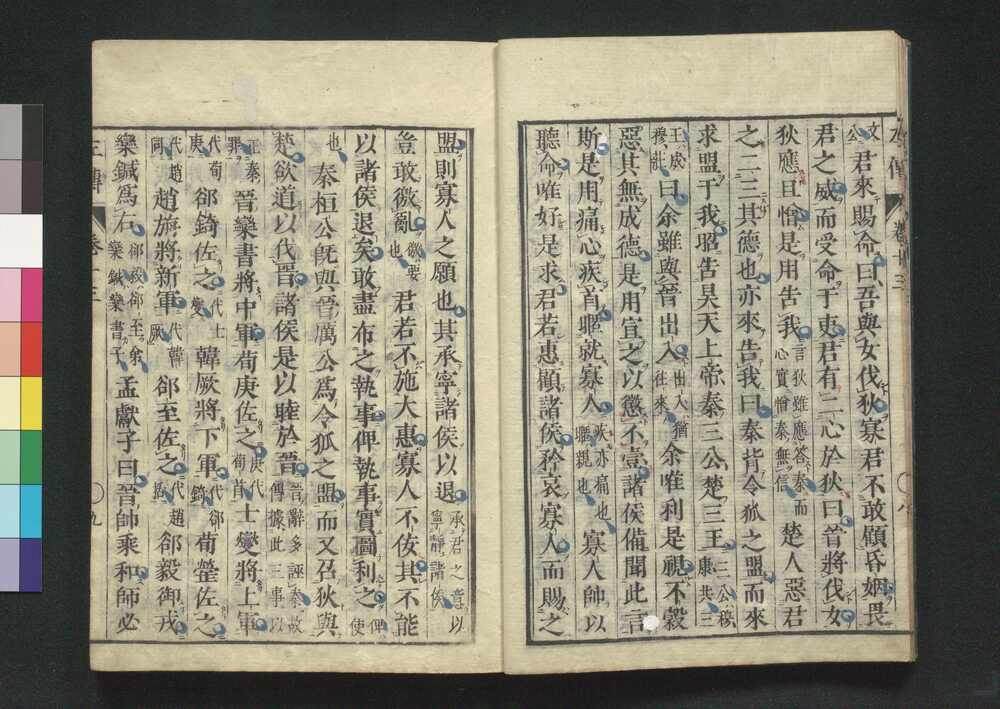 左傳 卷十三 〇八
文公君來賜命曰吾與女伐狄寡君不敢顧昏姻畏
君之威而受命于吏君有二心於狄曰晉將伐女
狄應且憎是用告我言狄雖應答秦而心實憎秦無信楚人惡君
之二三其德也亦來告我曰秦背令狐之盟而來
求盟于我昭告昊天上帝秦三公楚三王三公穆康共三
王成穆莊曰余雖與晉出入出入猶往來余唯利是視不穀
惡其無成德是用宣之以懲不壹諸侯備聞此言
斯是用痛心疾首暱就寡人疾亦痛也暱親也寡人帥以
聽命唯好是求君若惠顧諸侯矜哀寡人而賜之
盟則寡人之願也其承寧諸侯以退承君之意以寧靜諸侯
豈敢徼亂徼要也君若不施大惠寡人不佞其不能
以諸侯退矣敢盡布之執事俾執事實圖利之俾使
也秦桓公既與晉厲公爲令狐之盟而又召狄與
楚欲道以伐晉諸侯是以睦於晉晉辭多誣秦故傳據此三事以
正秦罪晉欒書將中軍荀庚佐之庚代荀首士燮將上軍
代荀庚郤錡佐之代士燮韓厥將下軍代郤錡荀罃佐之
代趙同趙旃將新軍代韓厥郤至佐之代趙括郤毅御戎
欒鍼爲右郤毅郤至弟欒鍼欒書子孟獻子曰晉師乘和師必
左傳 卷十三 〇九